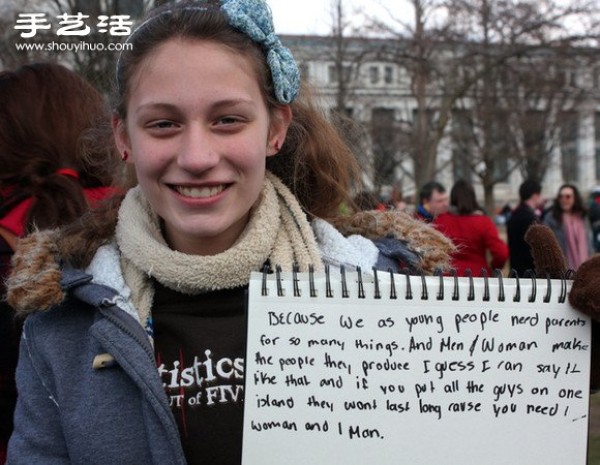 手艺活
www.shouyihuo.com
BECAUSE We as young people need parents
for so many things. And Men / Woman make
the people they produce I guess I can say it
like that and if you put all the guys on one
island they wont last long cause you need 1
woman and 1 Man.
tistics
OUT OF FIVE